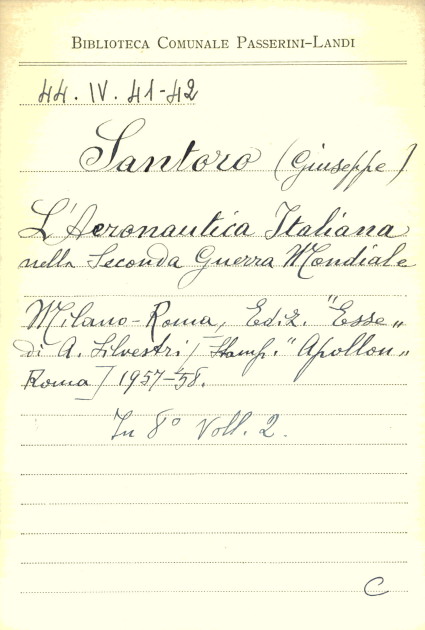 BIBLIOTECA COMUNALE PASSERINI-LANDI
44. IV. 41-42
Santoro (Giuseppe)
L'Aeronautica Italiana
nella Seconda Guerra Mondiale
Milano-Roma, Ediz. "Esse„
di A. Silvestri [Stamp. "Apollon„
Roma] 1957-58.
In 8° Voll. 2.
C